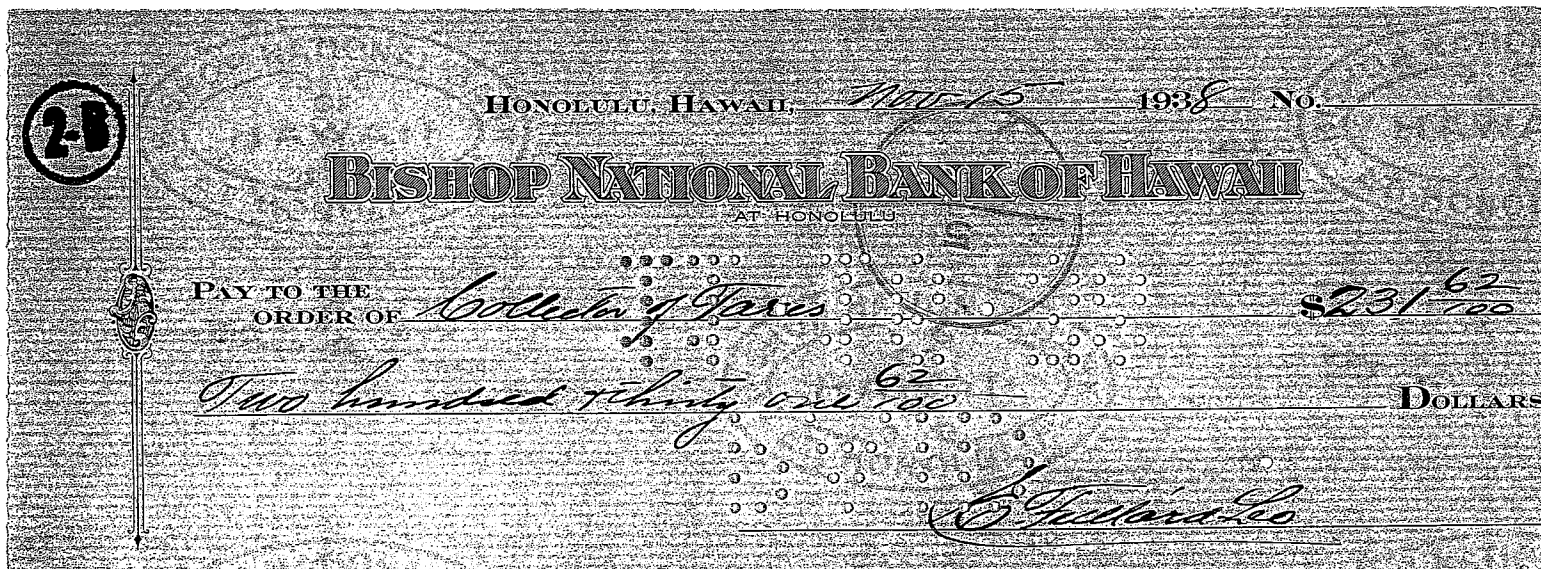 2-B
HONOLULU, HAWAII, Nov 15 1938 No.
BISHOP NATIONAL BANK OF HAWAII
AT HONOLULU
PAY TO THE
ORDER OF Collector of Taxes $231 62/100
Two hundred & thirty one 62/100 DOLLARS
Fullard Leo